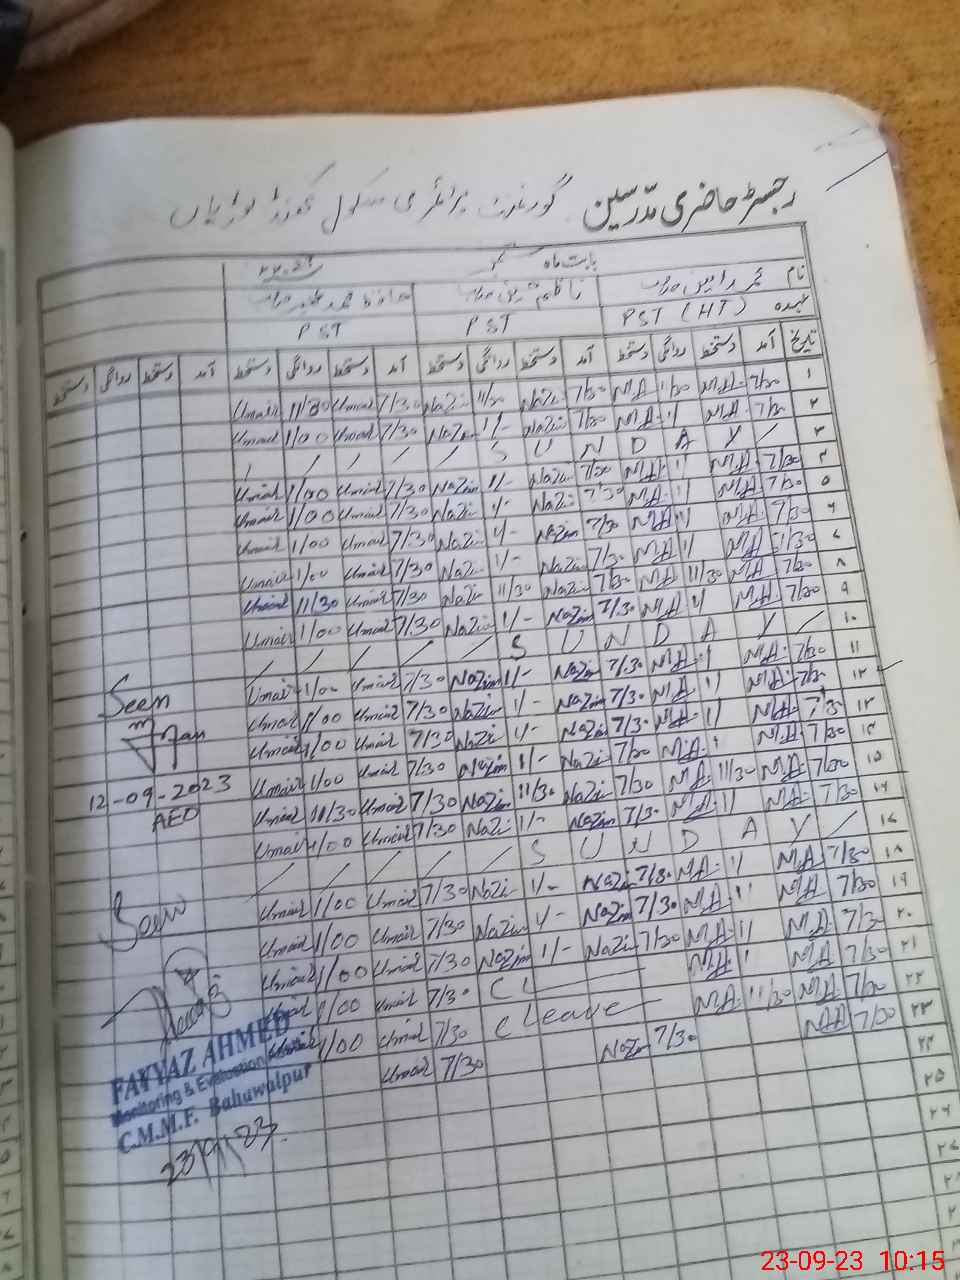 رجسٹر حاضری مدرسین گورنمنٹ پرائمری سکول
بابت ماہ ستمبر
نام
عہدہ PST (HT) PST PST
تاریخ آمد دستخط روانگی دستخط آمد دستخط روانگی دستخط آمد دستخط روانگی دستخط آمد دستخط روانگی دستخط
۱ 7/30 M.A 1/30 M.A 7/30 Nazi 11/30 Nazi 7/30 Umair 11/30 Umair
۲ 7/30 M.A 1/ M.A 7/30 Nazi 1/- Nazim 7/30 Umair 1/00 Umair
۳ S U N D A Y
۴ 7/30 M.A 1/ M.A 7/30 Nazi 1/- Nazim 7/30 Umair 1/00 Umair
۵ 7/30 M.A 1/ M.A 7/30 Nazi 1/- Nazi 7/30 Umair 1/00 Umair
۶ 7/30 M.A 1/ M.A 7/30 Nazim 1/- Nazi 7/30 Umair 1/00 Umair
۷ 7/30 M.A 1/ M.A 7/30 Nazi 1/- Nazi 7/30 Umair 1/00 Umair
۸ 7/30 M.A 11/30 M.A 7/30 Nazi 11/30 Nazi 7/30 Umair 11/30 Umair
۹ 7/30 M.A 1/ M.A 7/30 Nazim 1/- Nazi 7/30 Umair 1/00 Umair
۱۰ S U N D A Y
۱۱ 7/30 M.A 1/ M.A 7/30 Nazim 1/- Nazim 7/30 Umair 1/00 Umair
۱۲ 7/30 M.A 1/ M.A 7/30 Nazim 1/- Nazi 7/30 Umair 1/00 Umair
۱۳ 7/30 M.A 1/ M.A 7/30 Nazim 1/- Nazi 7/30 Umair 1/00 Umair
۱۴ 7/30 M.A 1 M.A 7/30 Nazi 1/- Nazim 7/30 Umair 1/00 Umair
۱۵ 7/30 M.A 11/30 M.A 7/30 Nazi 11/30 Nazi 7/30 Umair 11/30 Umair
۱۶ 7/30 M.A 1/ M.A 7/30 Nazim 1/- Nazi 7/30 Umair 1/00 Umair
۱۷ S U N D A Y
۱۸ 7/30 M.A 1/ M.A 7/30 Nazim 1/- Nazi 7/30 Umair 1/00 Umair
۱۹ 7/30 M.A 1/ M.A 7/30 Nazim 1/- Nazim 7/30 Umair 1/00 Umair
۲۰ 7/30 M.A 1/ M.A 7/30 Nazi 1/- Nazim 7/30 Umair 1/00 Umair
۲۱ 7/30 M.A 1 M.A CL 7/30 Umair 1/00 Umair
۲۲ 7/30 M.A 11/30 M.A C Leave 7/30 Umair 1/00
۲۳ 7/30 M.A 7/30 Nazim 7/30 Umair
۲۴
۲۵
۲۶
Seen
12-09-2023
AEO
Seen
FAYYAZ AHMED
Monitoring & Evaluation
C.M.M.F. Bahawalpur
23/9/23
23-09-23 10:15